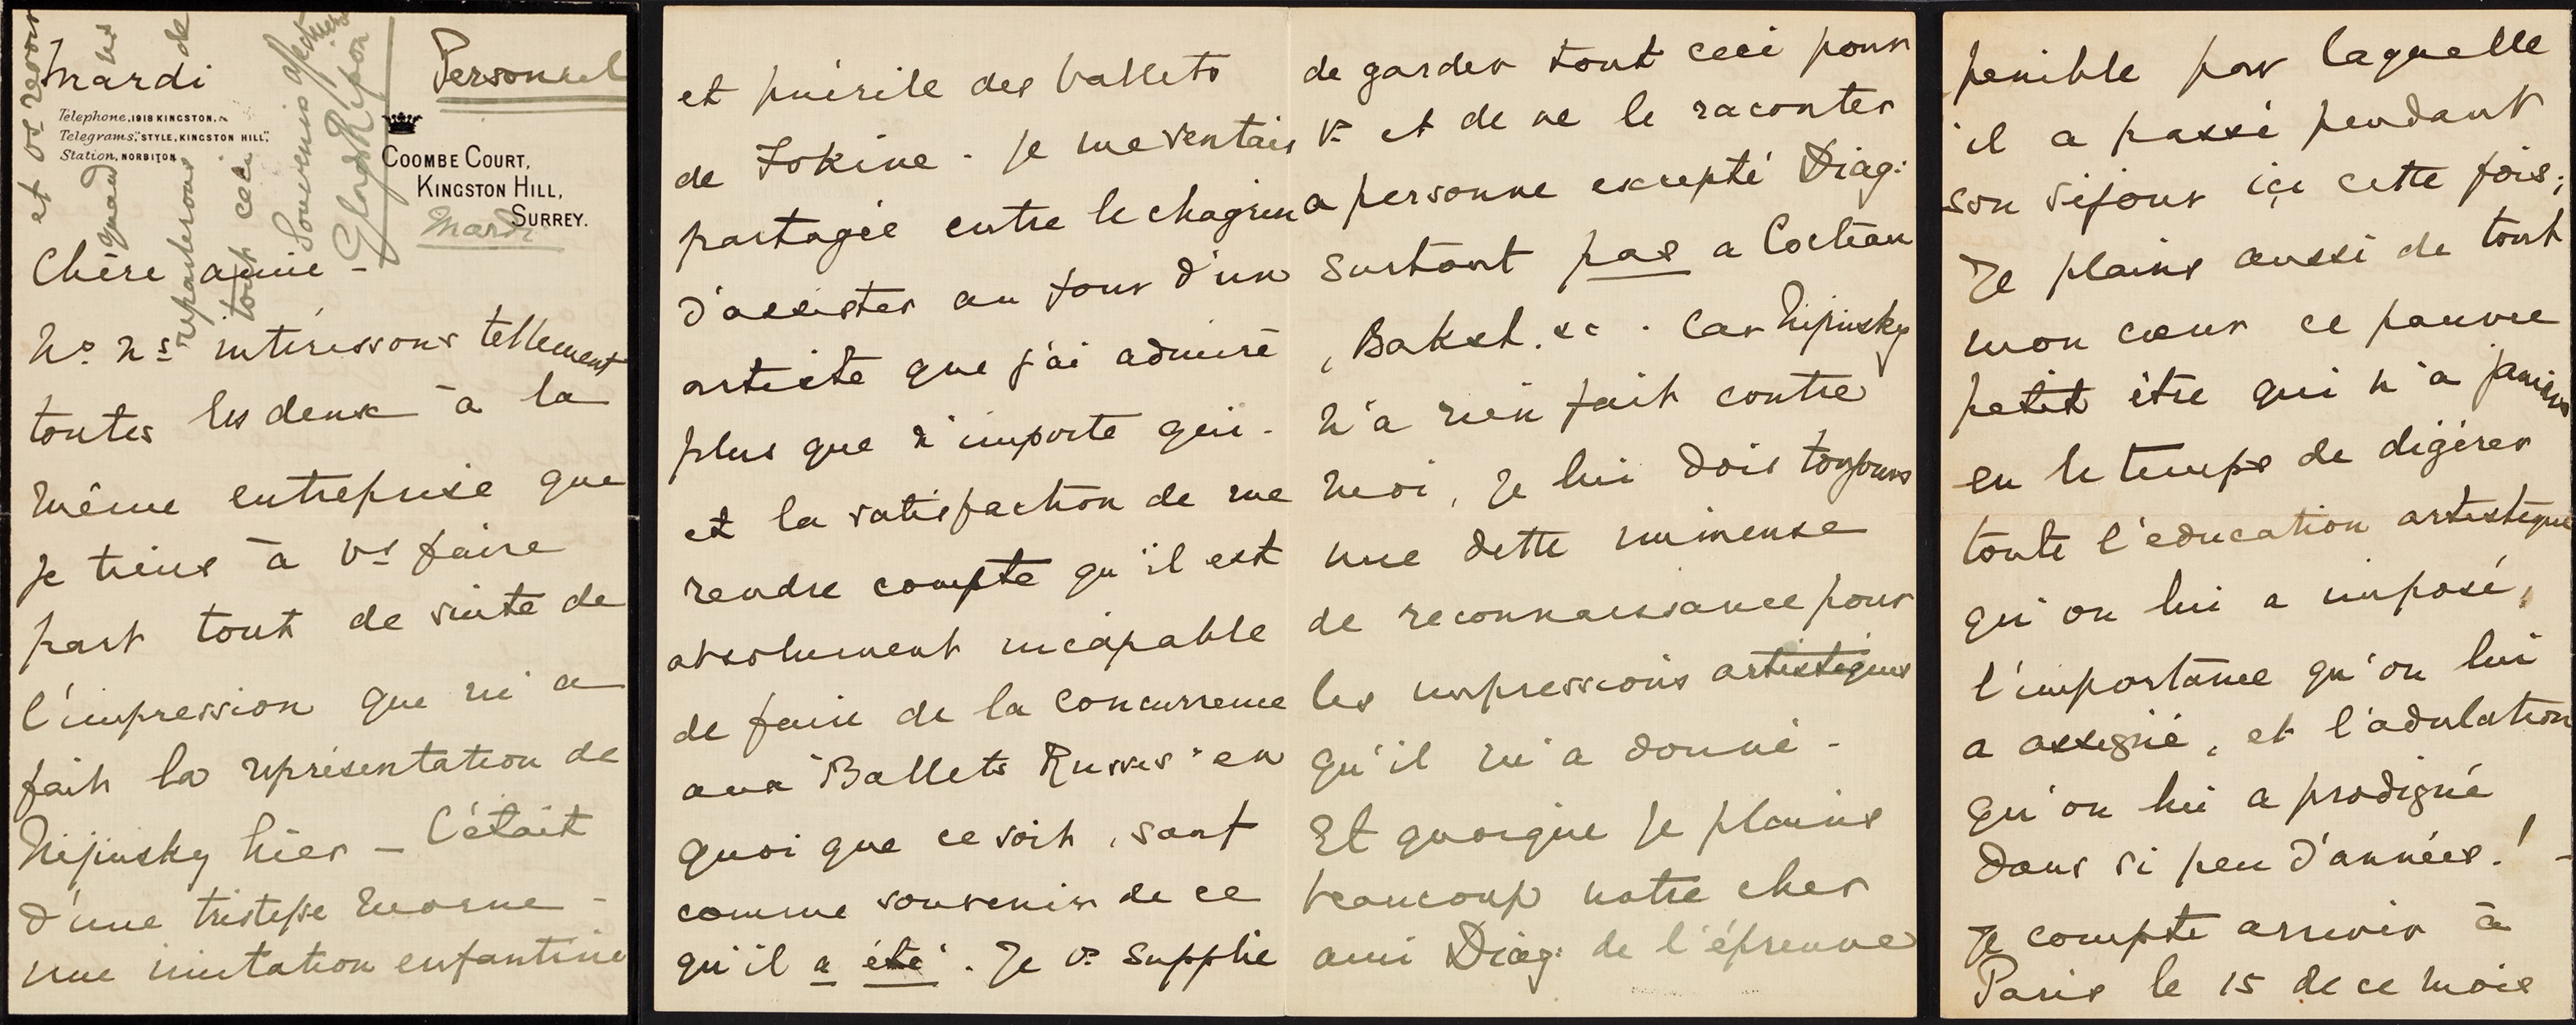 Mardi
Personnel
Telephone, 1918 KINGSTON.
Telegrams, "STYLE, KINGSTON HILL".
Station, NORBITON
COOMBE COURT,
KINGSTON HILL,
SURREY.
Mardi
Chère amie –
Ns. ns. intéressons tellement
toutes les deux à la
même entreprise que
je tiens à vs faire
part tout de suite de
l'impression que m'a
fait la représentation de
Nijinsky hier – C'était
d'une tristesse morne –
une imitation enfantine
et puérile des ballets
de Fokine. Je me sentais
partagée entre le chagrin
d'assister au four d'un
artiste que j'ai admiré
plus que n'importe qui –
et la satisfaction de me
rendre compte qu'il est
absolument incapable
de faire de la concurrence
aux "Ballets Russes" en
quoi que ce soit, sauf
comme souvenir de ce
qu'il a été. Je vs supplie
de garder tout ceci pour
vs et de ne le raconter
a personne excepté Diag:
surtout pas a Cocteau
, Bakst. &c. Car Nijinsky
n'a rien fait contre
moi, je lui dois toujours
une dette immense
de reconnaissance pour
les impressions artistiques
qu'il m'a donné –
Et quoique je plains
beaucoup notre cher
ami Diag: de l'épreuve
penible par laquelle
il a passé pendant
son séjour içi cette fois;
Je plains aussi de tout
mon cœur ce pauvre
petit être qui n'a jamais
eu le temps de digérer
toute l'education artistique
qu'on lui a imposé,
l'importance qu'on lui
a assigné, et l'adulation
qu'on lui a prodigué
dans si peu d'années! –
Je compte arriver à
Paris le 15 de ce mois
et vs revoir
quand ns
reparlerons de
tout ceci
Souvenirs affectueux
Gladys Ripon